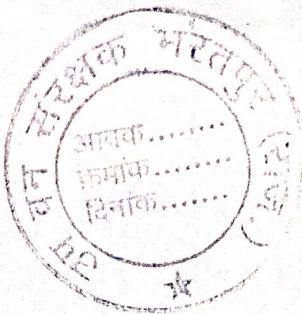 उप वन संरक्षक भरतपुर (राज.)
आवक........
क्रमांक........
दिनांक........